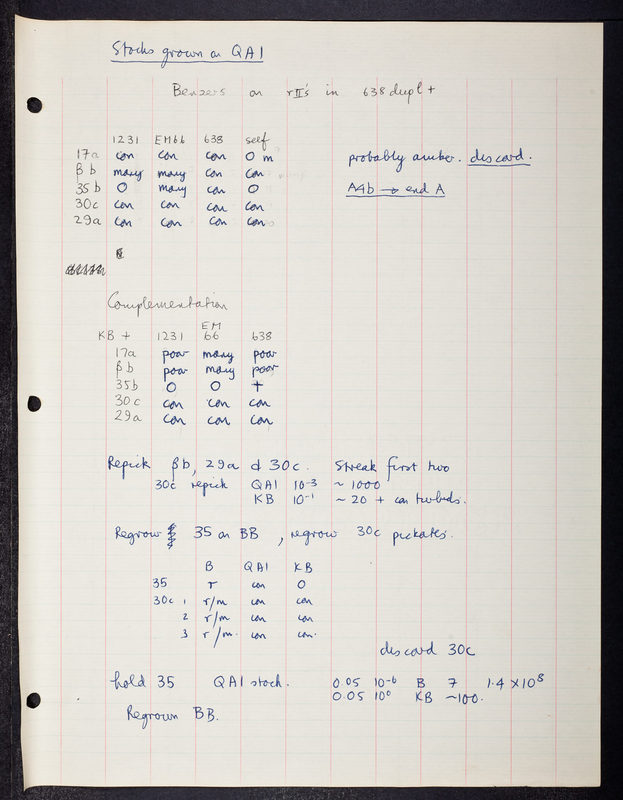 Stocks grown on QA1
Benzers on rII's in 638 dupl +
1231 EM66 638 self
17a con con con 0 m probably amber. discard.
βb many many con con
35b 0 many con 0 A4b → end A
30c con con con con
29a con con con con
Complementation
KB + 1231 EM 66 638
17a poor many poor
βb poor many poor
35b 0 0 +
30c con con con
29a con con con
Repick βb, 29a & 30c. Streak first two
30c repick QA1 10-3 ~ 1000
KB 10-1 ~ 20 + con turbids.
Regrow 35 on BB, regrow 30c pickates.
B QA1 KB
35 r con 0
30c 1 r/m con con
2 r/m con con
3 r/m. con con.
discard 30c
hold 35 QA1 stock. 0.05 10-6 B 7 1.4 × 108
0.05 100 KB ~100.
Regrown BB.